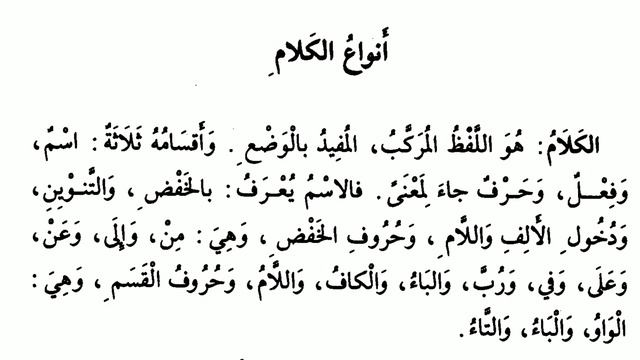 أَنواعُ الكَلامِ
الكَلَامُ: هُوَ اللَّفْظُ المُرَكَّبُ، المُفِيدُ بالْوَضْعِ. وَأَقسَامُهُ ثَلَاثَةٌ: اسْمٌ،
وَفِعْـلٌ، وَحَـرْفٌ جاءَ لِمَعْنَىً. فالاسْمُ يُعْـرَفُ: بالخَفْضِ، وَالتَّنـوْينِ،
وَدُخُولِ الأَلِفِ وَاللَّامِ، وَحُرُوفِ الخَفْضِ، وَهِيَ: مِنْ، وَإِلَى، وَعَنْ،
وَعَلَى، وَفي، وَرُبَّ، وَالبَاءُ، وَالْكافُ، وَاللَّامُ، وَحُرُوفُ الْقَسَمِ، وَهِيَ:
الْوَاوُ، وَالْبَاءُ، وَالتَّاءُ.